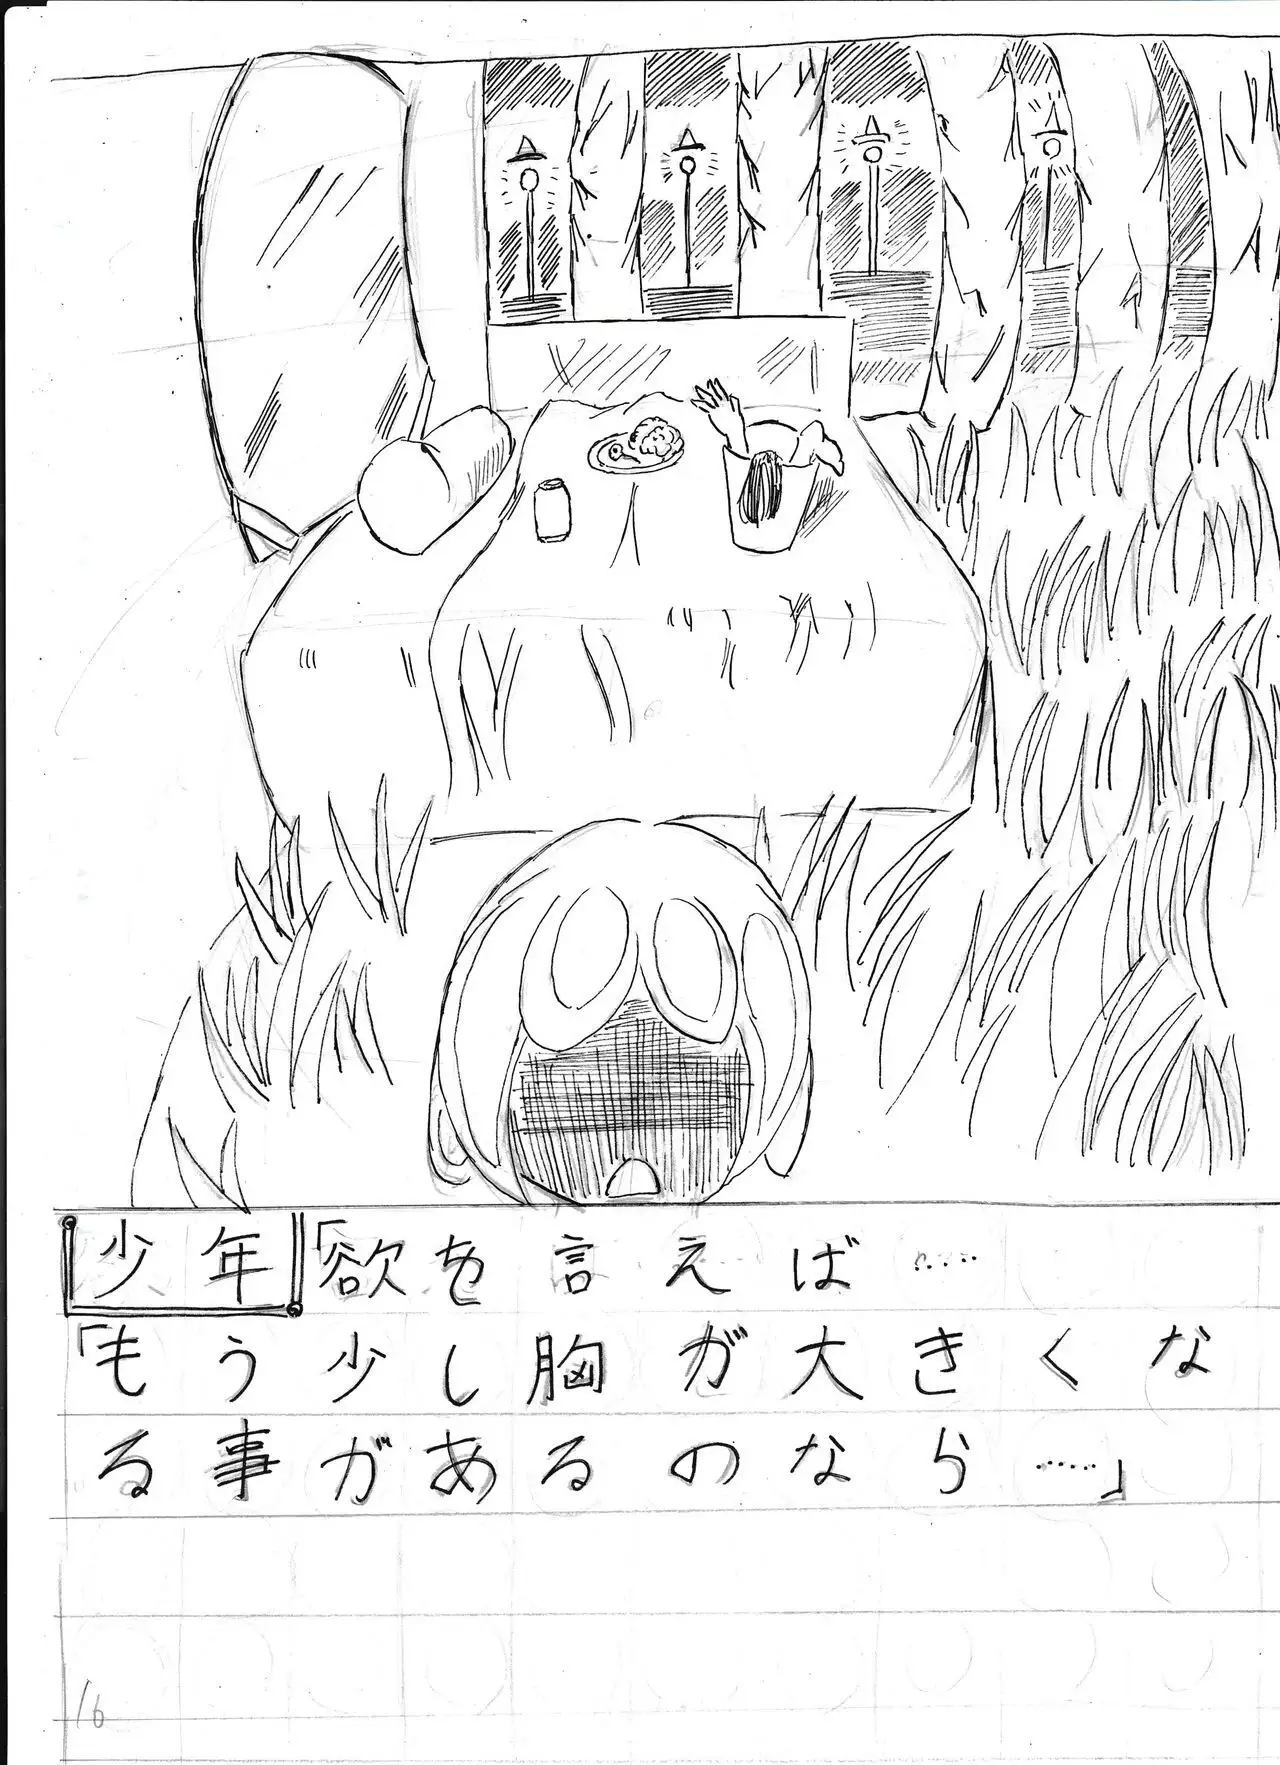 少年「欲を言えば……
「もう少し胸が大きくな
る事があるのなら……」
16